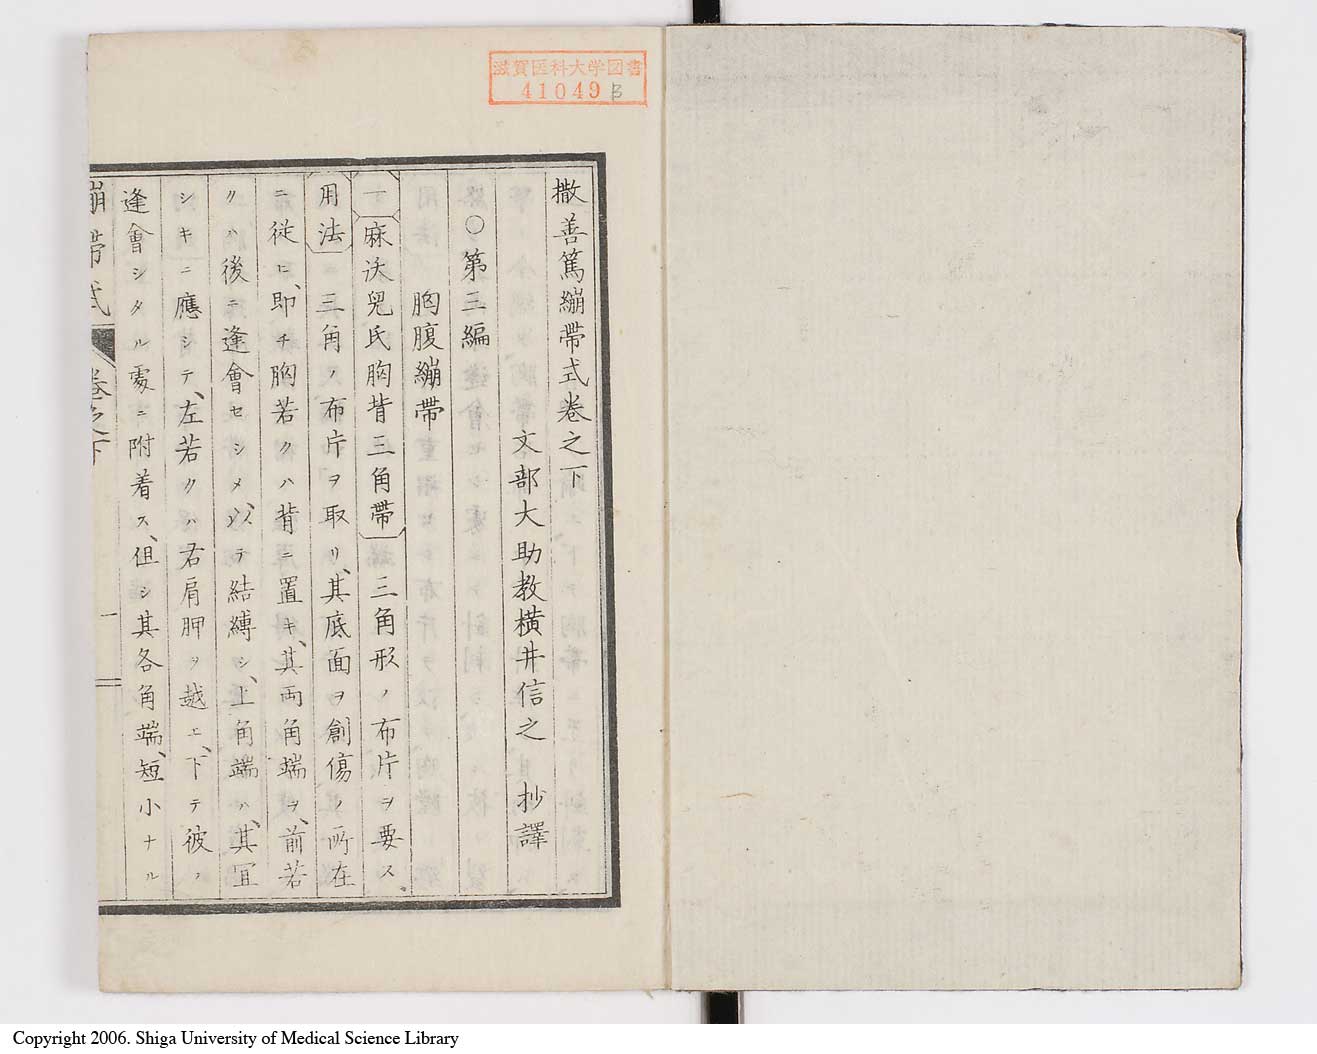 滋賀医科大学図書
41049 B
撒善篤繃帶式卷之下
文部大助教横井信之 抄譯
○第三編
胸腹繃帶
一 麻沃兒氏胸背三角帶 三角形ノ布片ヲ要ス、
用法 三角ノ布片ヲ取リ、其底面ヲ創傷ノ所在
ニ從ヒ、即チ胸若クハ背ニ置キ、其両角端ヲ、前若
クハ後ニテ逢會セシメ、以テ結縛シ、上角端ハ、其冝
シキニ應シテ、左若クハ右肩胛ヲ越ヱ、下テ彼ノ
逢會シタル處ニ附着ス、但シ其各角端、短小ナル
繃帶式 卷之下 一
Copyright 2006. Shiga University of Medical Science Library